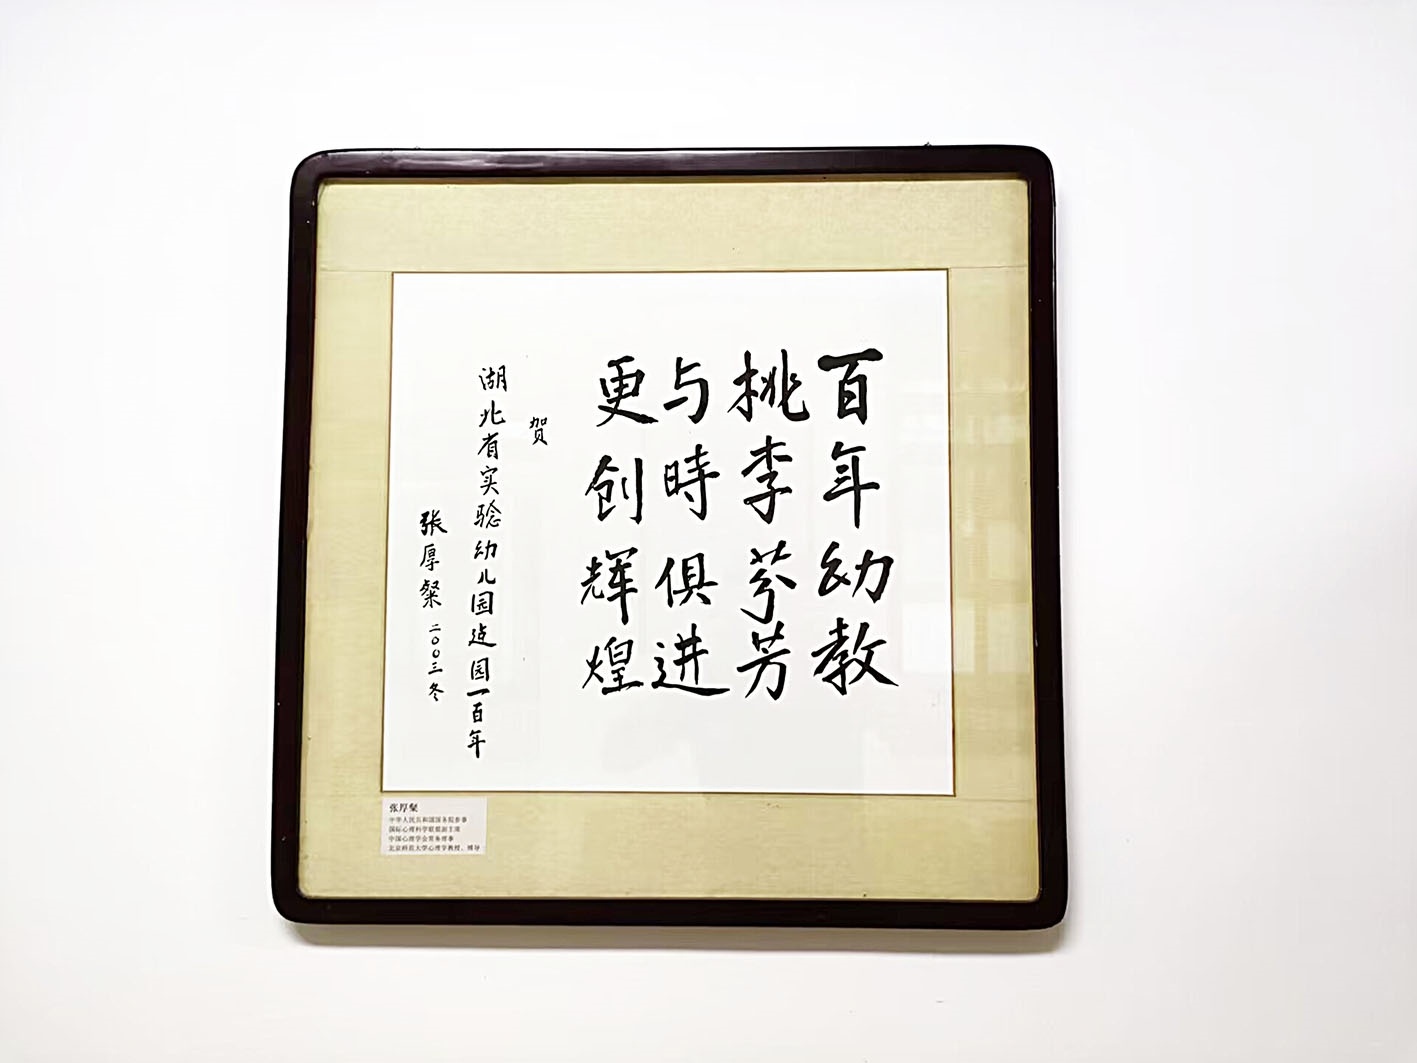 百年幼教
桃李芬芳
与時俱进
更创辉煌
贺
湖北省实验幼儿园建园一百年
张厚粲 二〇〇三冬
张厚粲
中华人民共和国国务院参事
国际心理科学联盟副主席
中国心理学会常务理事
北京师范大学心理学教授、博导